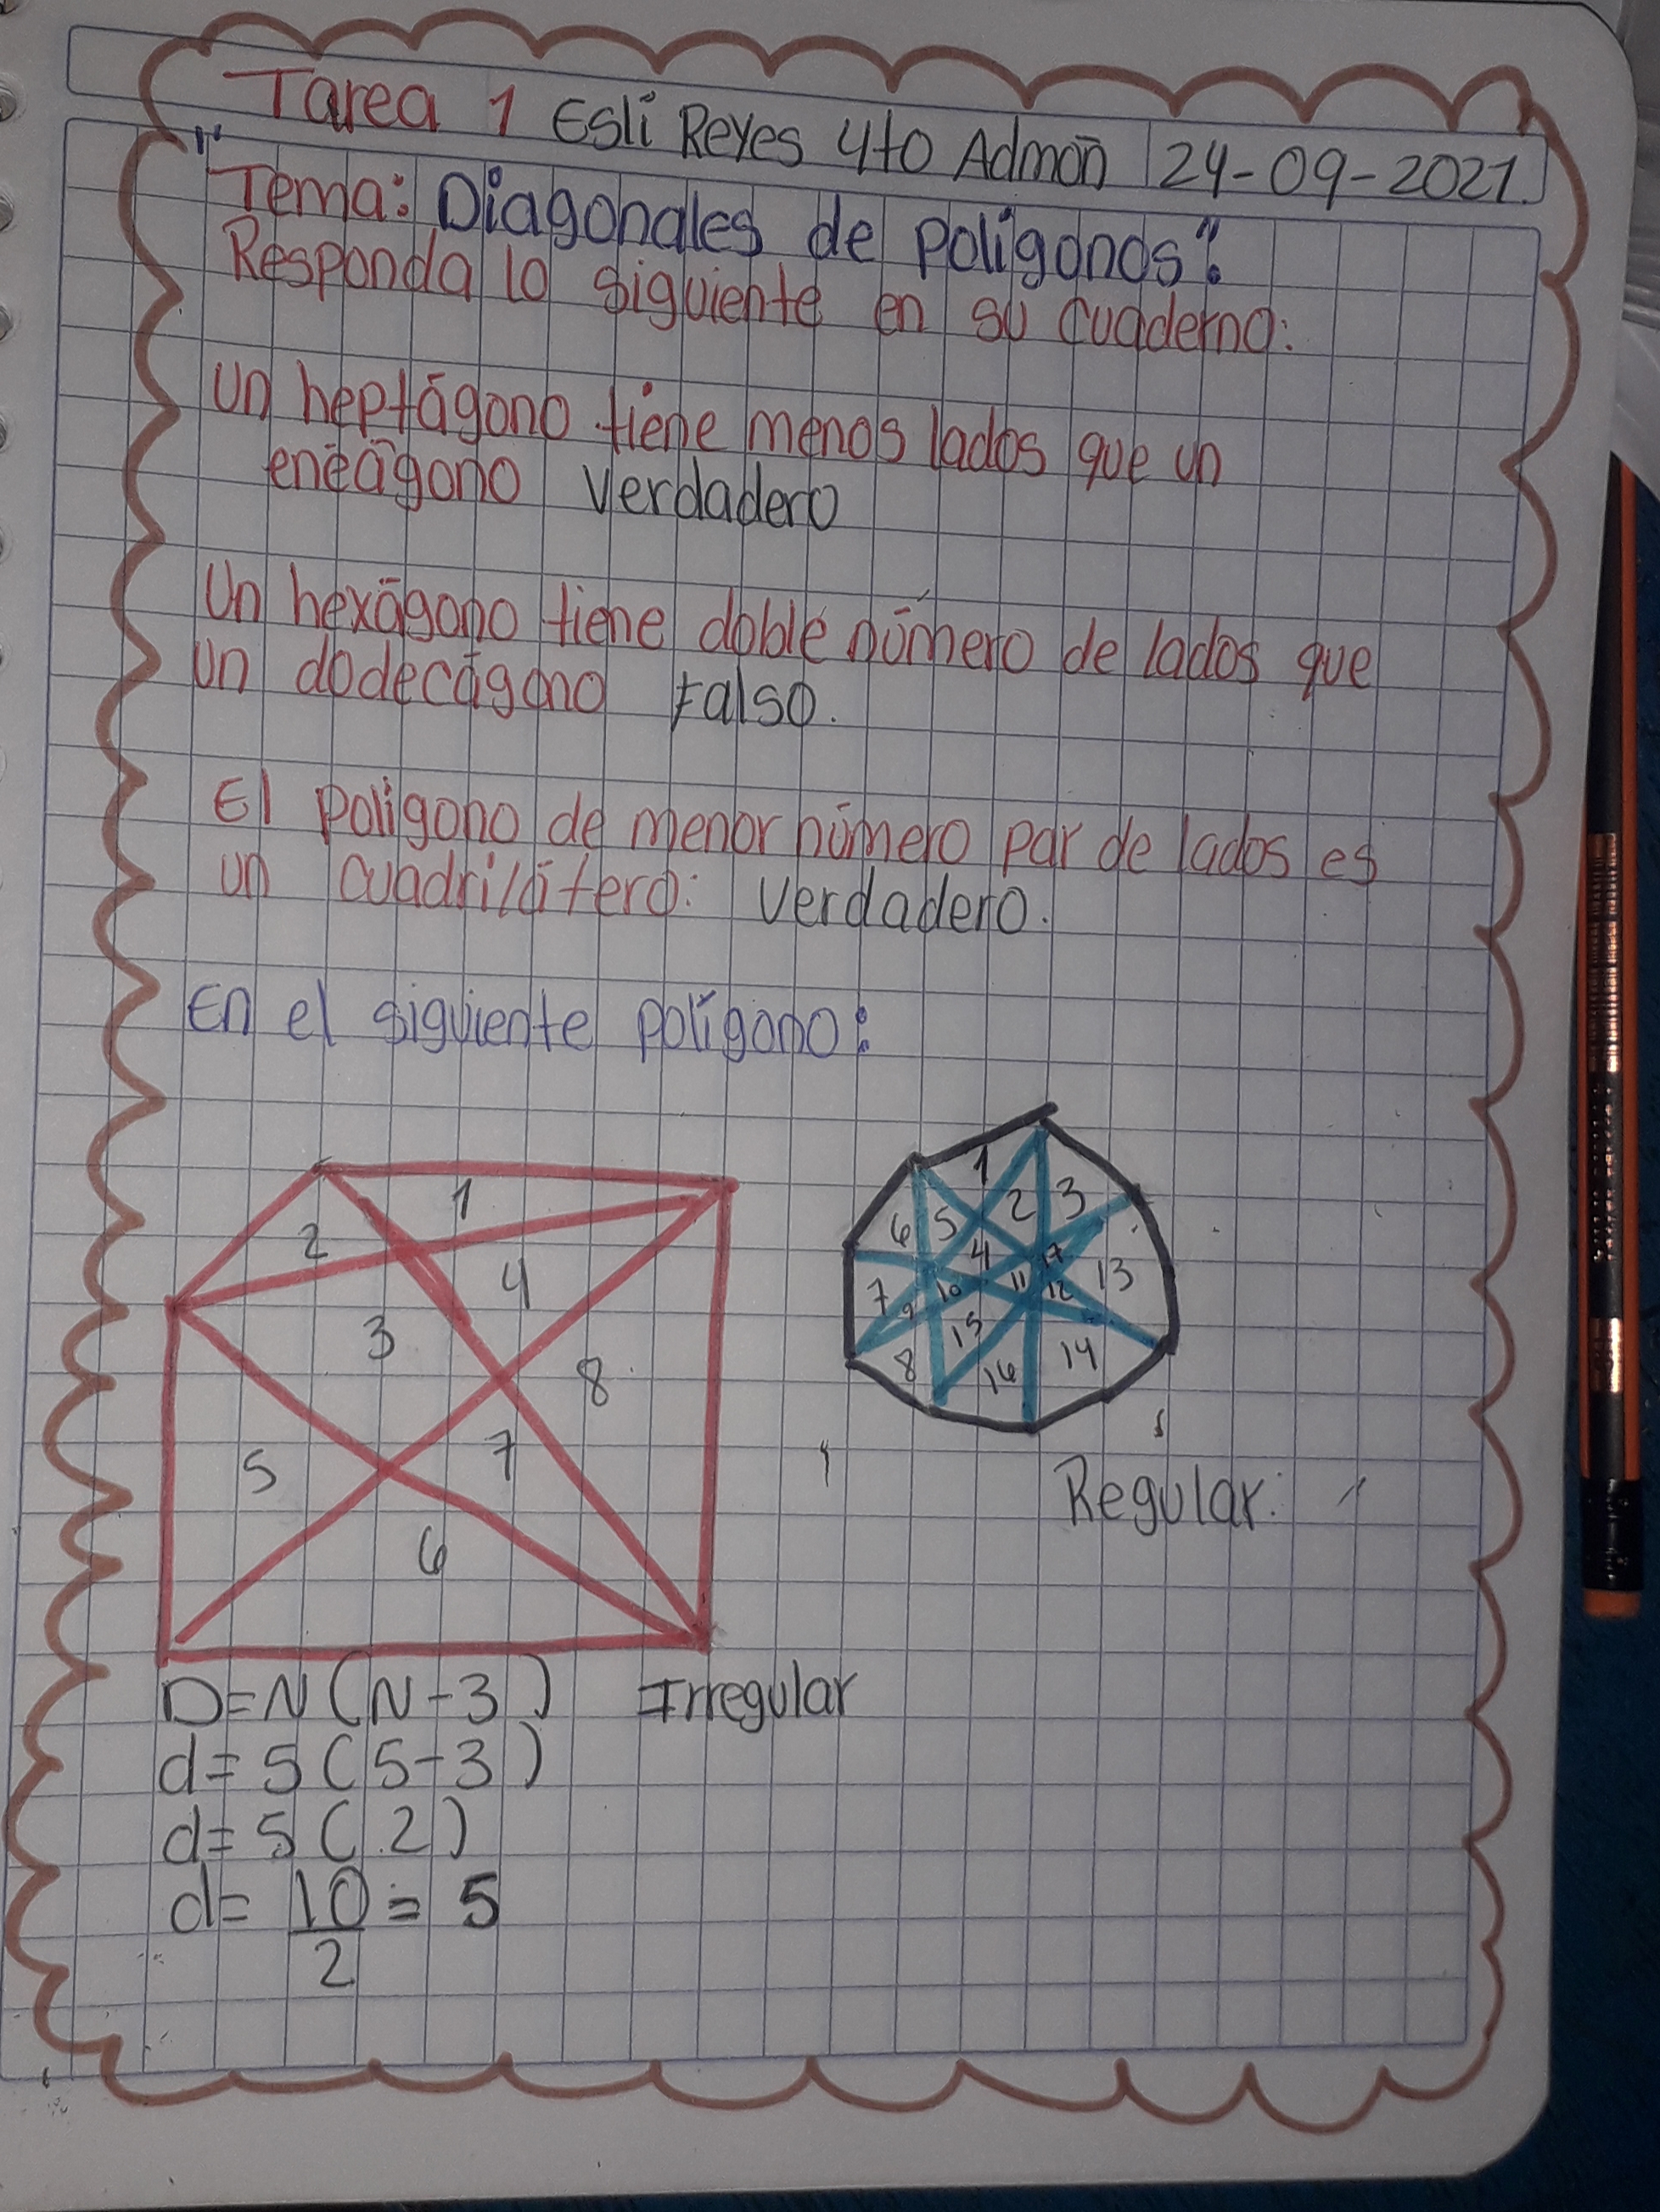 Tarea 1 Esli Reyes 4to Admón 24-09-2021.
"Tema: Diagonales de poligonos".
Responda lo siguiente en su cuaderno:
Un heptágono tiene menos lados que un
eneágono Verdadero
Un hexágono tiene doble número de lados que
un dodecágono Falso.
El poligono de menor número par de lados es
un cuadrilátero: Verdadero.
En el siguiente polígono:
1
2
3
4
5
6
7
8
1
2
3
4
5
6
7
8
9
10
11
12
13
14
15
16
17
Regular.
Irregular
D=N(N-3)
d=5(5-3)
d=5(2)
d= 10 = 5
2